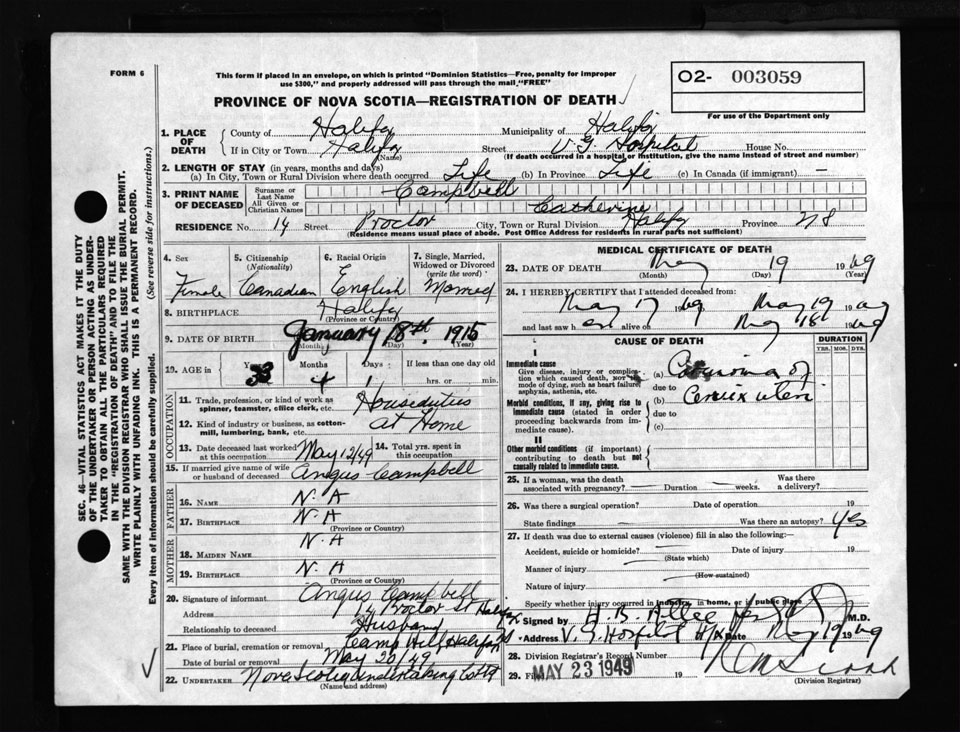 FORM 6
This form if placed in an envelope, on which is printed "Dominion Statistics—Free, penalty for improper
use $300," and properly addressed will pass through the mail "FREE"
O2- 003059
For use of the Department only
PROVINCE OF NOVA SCOTIA—REGISTRATION OF DEATH
1. PLACE OF DEATH
County of Halifax Municipality of Halifax
If in City or Town Halifax (Name) Street V.G. Hospital House No.
(If death occurred in a hospital or institution, give the name instead of street and number)
2. LENGTH OF STAY (in years, months and days)
(a) In City, Town or Rural Division where death occurred Life (b) In Province Life (c) In Canada (if immigrant) —
3. PRINT NAME OF DECEASED
Surname or Last Name Campbell
All Given or Christian Names Catherine
RESIDENCE No. 14 Street Proctor City, Town or Rural Division Halifax Province N S
(Residence means usual place of abode. Post Office Address for residents in rural parts not sufficient)
4. Sex Female
5. Citizenship (Nationality) Canadian
6. Racial Origin English
7. Single, Married, Widowed or Divorced (write the word) Married
8. BIRTHPLACE Halifax
(Province or Country)
9. DATE OF BIRTH January 18th. 1915
(Month) (Day) (Year)
10. AGE in Years 33 Months 4 Days 1 If less than one day old
hrs. or min.
OCCUPATION
11. Trade, profession, or kind of work as spinner, teamster, office clerk, etc. Houseduties
12. Kind of industry or business, as cotton-mill, lumbering, bank, etc. at Home
13. Date deceased last worked at this occupation May 12/49
14. Total yrs. spent in this occupation
15. If married give name of wife or husband of deceased Angus Campbell
FATHER
16. NAME N. A
17. BIRTHPLACE N. A
(Province or Country)
MOTHER
18. MAIDEN NAME N. A
19. BIRTHPLACE N. A
(Province or Country)
20. Signature of informant Angus Campbell
Address 14 Proctor St Halifax
Relationship to deceased Husband
21. Place of burial, cremation or removal Camp Hill, Halifax
Date of burial or removal May 20/49
22. UNDERTAKER Nova Scotia Undertaking Co Ltd
(Name and address)
MEDICAL CERTIFICATE OF DEATH
23. DATE OF DEATH May 19 1949
(Month) (Day) (Year)
24. I HEREBY CERTIFY that I attended deceased from:
May 17 1949 May 19 1949
and last saw h er alive on May 18 1949
CAUSE OF DEATH
DURATION
YRS. MOS. DYS.
I
Immediate cause
Give disease, injury or complication which caused death, NOT the mode of dying, such as heart failure, asphyxia, asthenia, etc.
(a) Carcinoma of
due to
Morbid conditions, if any, giving rise to immediate cause (stated in order proceeding backwards from immediate cause).
(b) Cervix uteri
due to
(c)
II
Other morbid conditions (if important) contributing to death but not causally related to immediate cause.
25. If a woman, was the death associated with pregnancy? — Duration — weeks. Was there a delivery?
26. Was there a surgical operation? Date of operation 19
State findings — Was there an autopsy? Yes
27. If death was due to external causes (violence) fill in also the following:—
Accident, suicide or homicide? — Date of injury 19
(State which)
Manner of injury
(How sustained)
Nature of injury
Specify whether injury occurred in industry, in home, or in public place
Signed by M.D.
Address V. G. Hospital Hfx Date May 19 1949
28. Division Registrar's Record Number
29. Filed MAY 23 1949 19
(Division Registrar)
SEC. 46—VITAL STATISTICS ACT MAKES IT THE DUTY
OF THE UNDERTAKER OR PERSON ACTING AS UNDER-
TAKER TO OBTAIN ALL THE PARTICULARS REQUIRED
IN THE "REGISTRATION OF DEATH" AND TO FILE THE
SAME WITH THE DIVISION REGISTRAR WHO SHALL ISSUE THE BURIAL PERMIT.
WRITE PLAINLY WITH UNFADING INK. THIS IS A PERMANENT RECORD.
Every item of information should be carefully supplied. (See reverse side for instructions.)